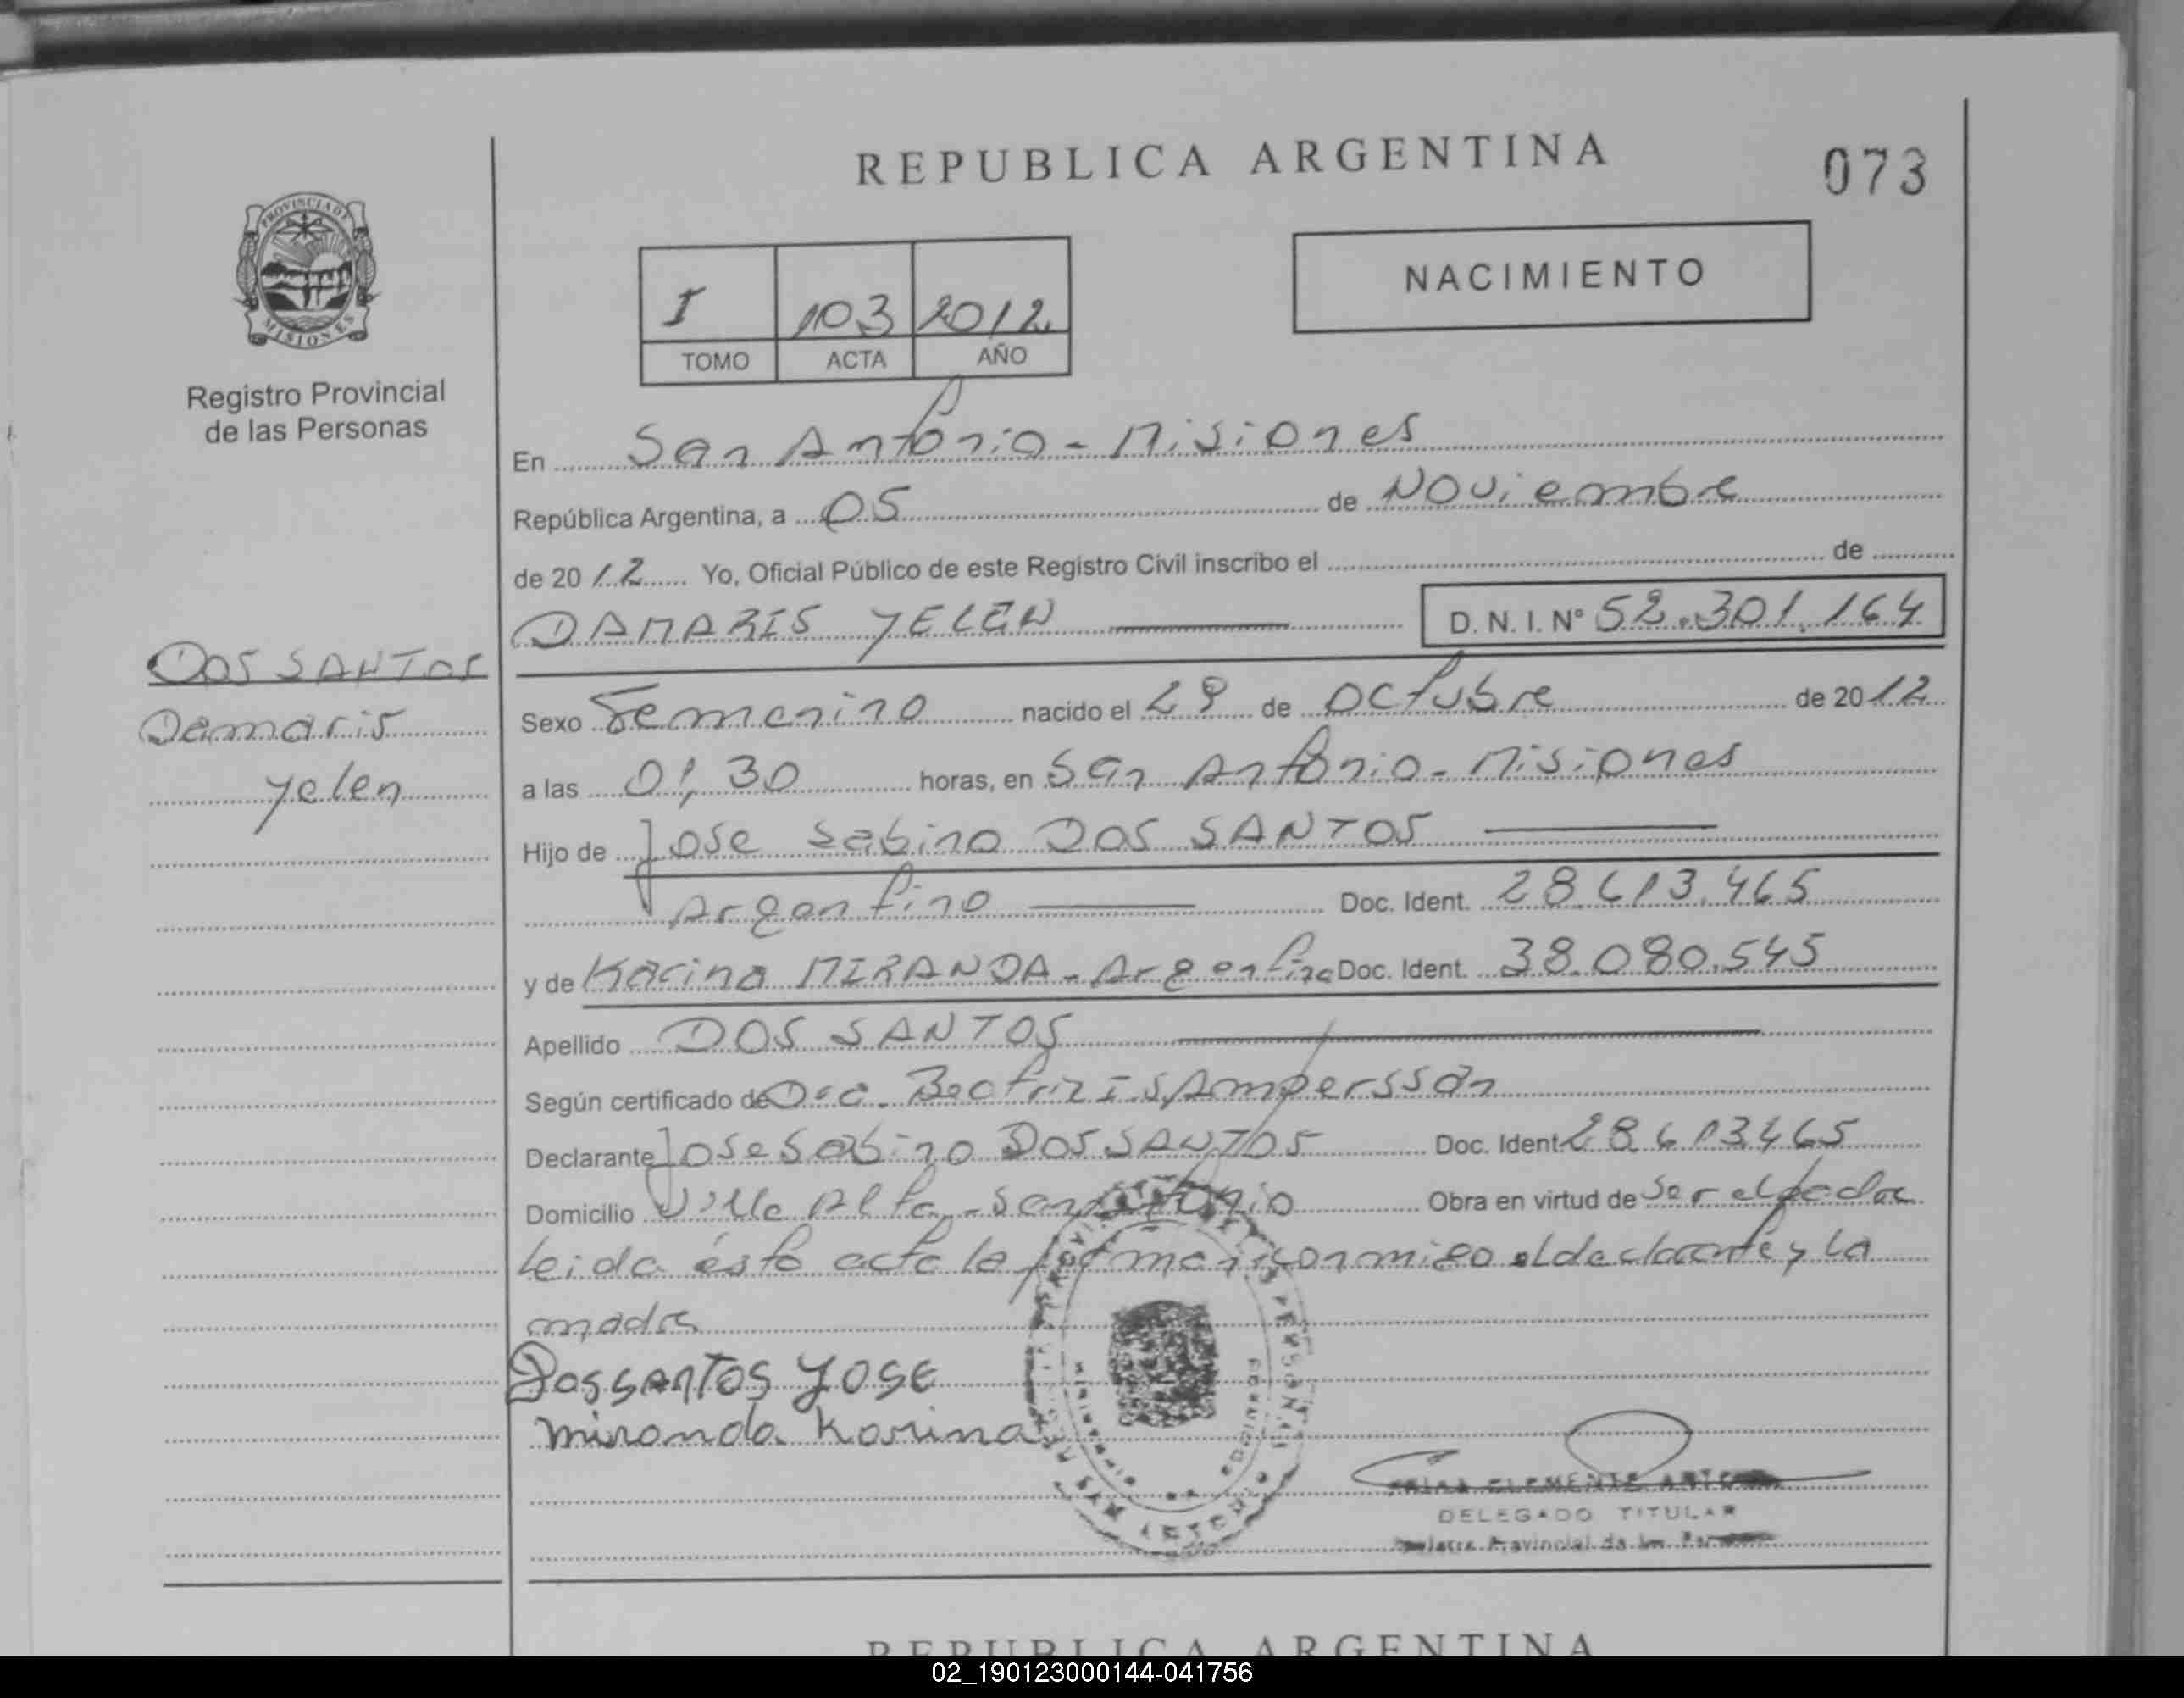 REPUBLICA ARGENTINA
073
PROVINCIA DE
MISIONES
Registro Provincial
de las Personas
I 103 2012
TOMO ACTA AÑO
NACIMIENTO
En San Antonio - Misiones
República Argentina, a 05 de Noviembre
de 2012 Yo, Oficial Público de este Registro Civil inscribo el de
DAMARIS YELEN D. N. I. N° 52.301.164
DOS SANTOS
Damaris
Yelen
Sexo Femenino nacido el 29 de Octubre de 2012
a las 01,30 horas, en San Antonio - Misiones
Hijo de Jose Sabino DOS SANTOS
Argentino Doc. Ident. 28.613.465
y de Karina MIRANDA - Argentina Doc. Ident. 38.080.545
Apellido DOS SANTOS
Según certificado de Dra. Beatriz
Declarante Jose Sabino DOS SANTOS Doc. Ident. 28613465
Domicilio Villa Alta - San Antonio Obra en virtud de Ser el padre
Leida ésta acta la firman conmigo el declarante y la
madre
Dossantos Jose
Miranda Karina
CLEMENTE
DELEGADO TITULAR
Provincial de las
REPUBLICA ARGENTINA
02_190123000144-041756